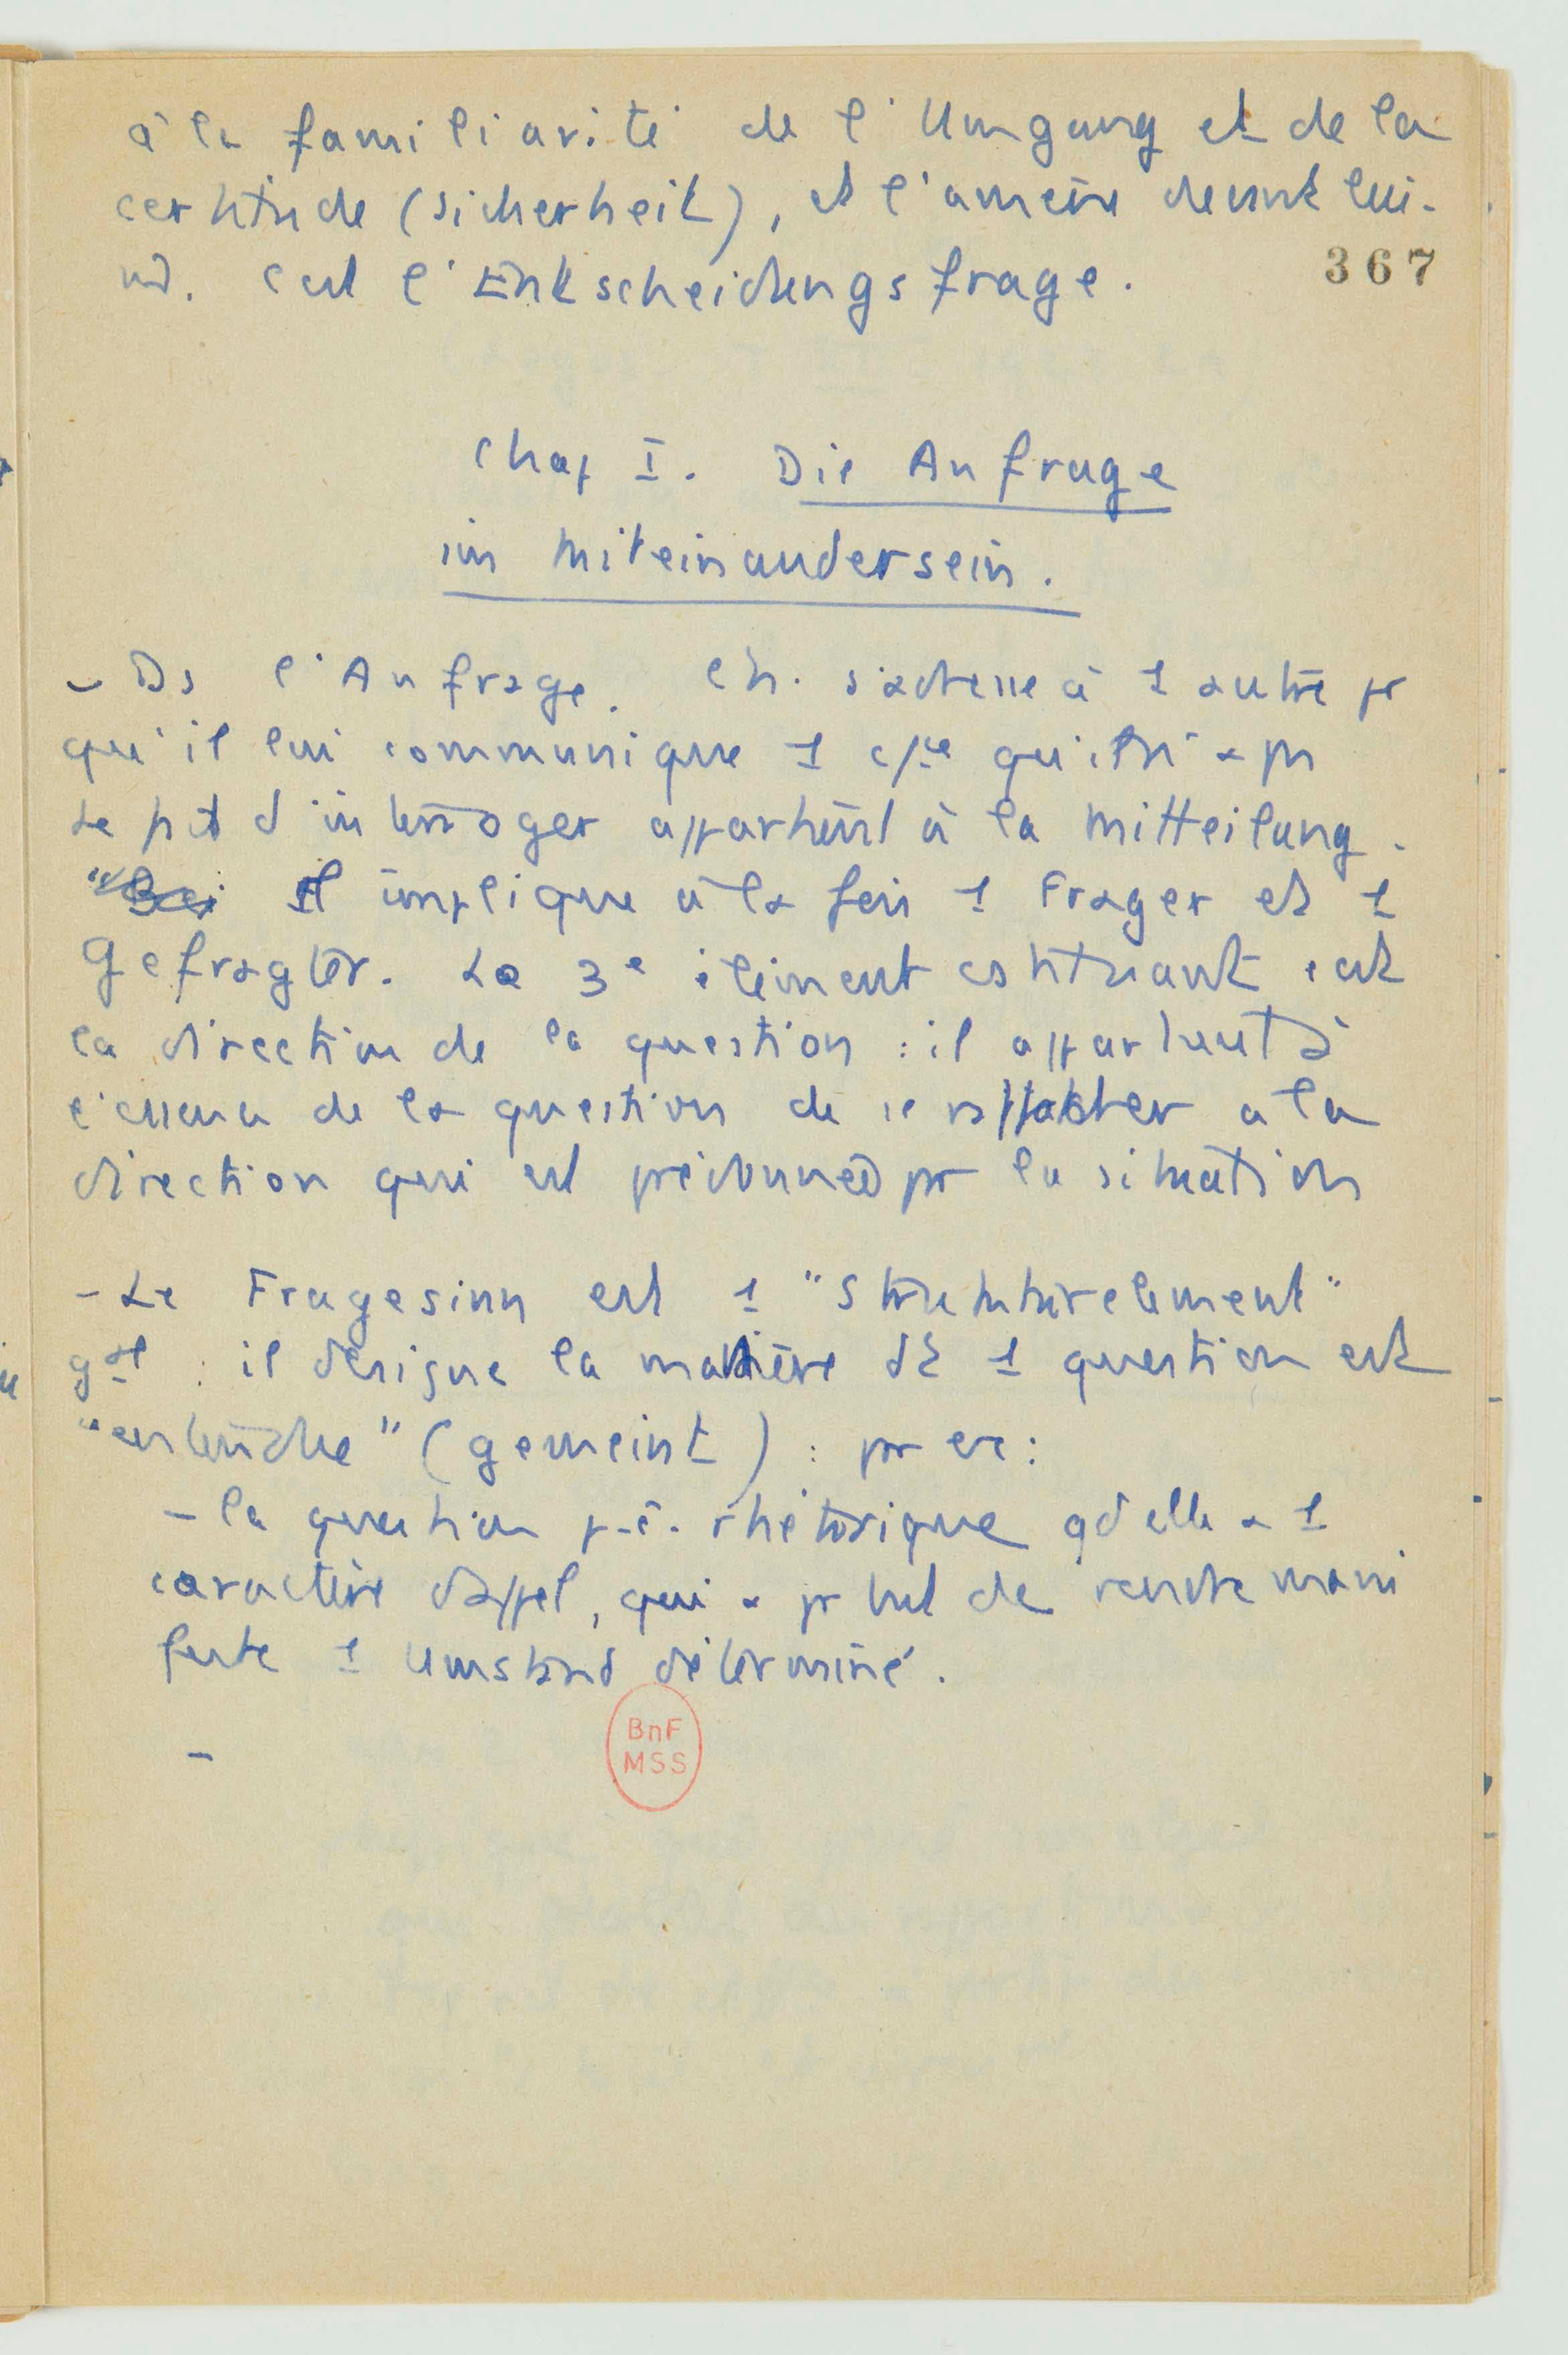 à la familiarité de l'Umgang et de la
certitude (Sicherheit), et l'amène devant lui-
m̂. C'est l'Entscheidungsfrage.
367
Chap I. Die Anfrage
im Miteinandersein.
- Ds l'Anfrage, s'adresse à 1 autre pr
qu'il lui communique 1
Le fait d'interroger appartient à la Mitteilung.
Il implique à la fois 1 Frager et 1
Gefragter. Le 3e élément est
la direction de la question : il appartient à
l'essence de la question de se rapporter à la
direction qui est prédonnée par la situation
- Le Fragesinn est 1 "Strukturelement"
gal : il désigne la manière dt 1 question est
"entendue" (gemeint) : par ex :
- la question p-ê. rhétorique qd elle a 1
caractère d'appel, qui a pr but de rendre mani
feste 1 Umstand déterminé.
-
BnF
MSS